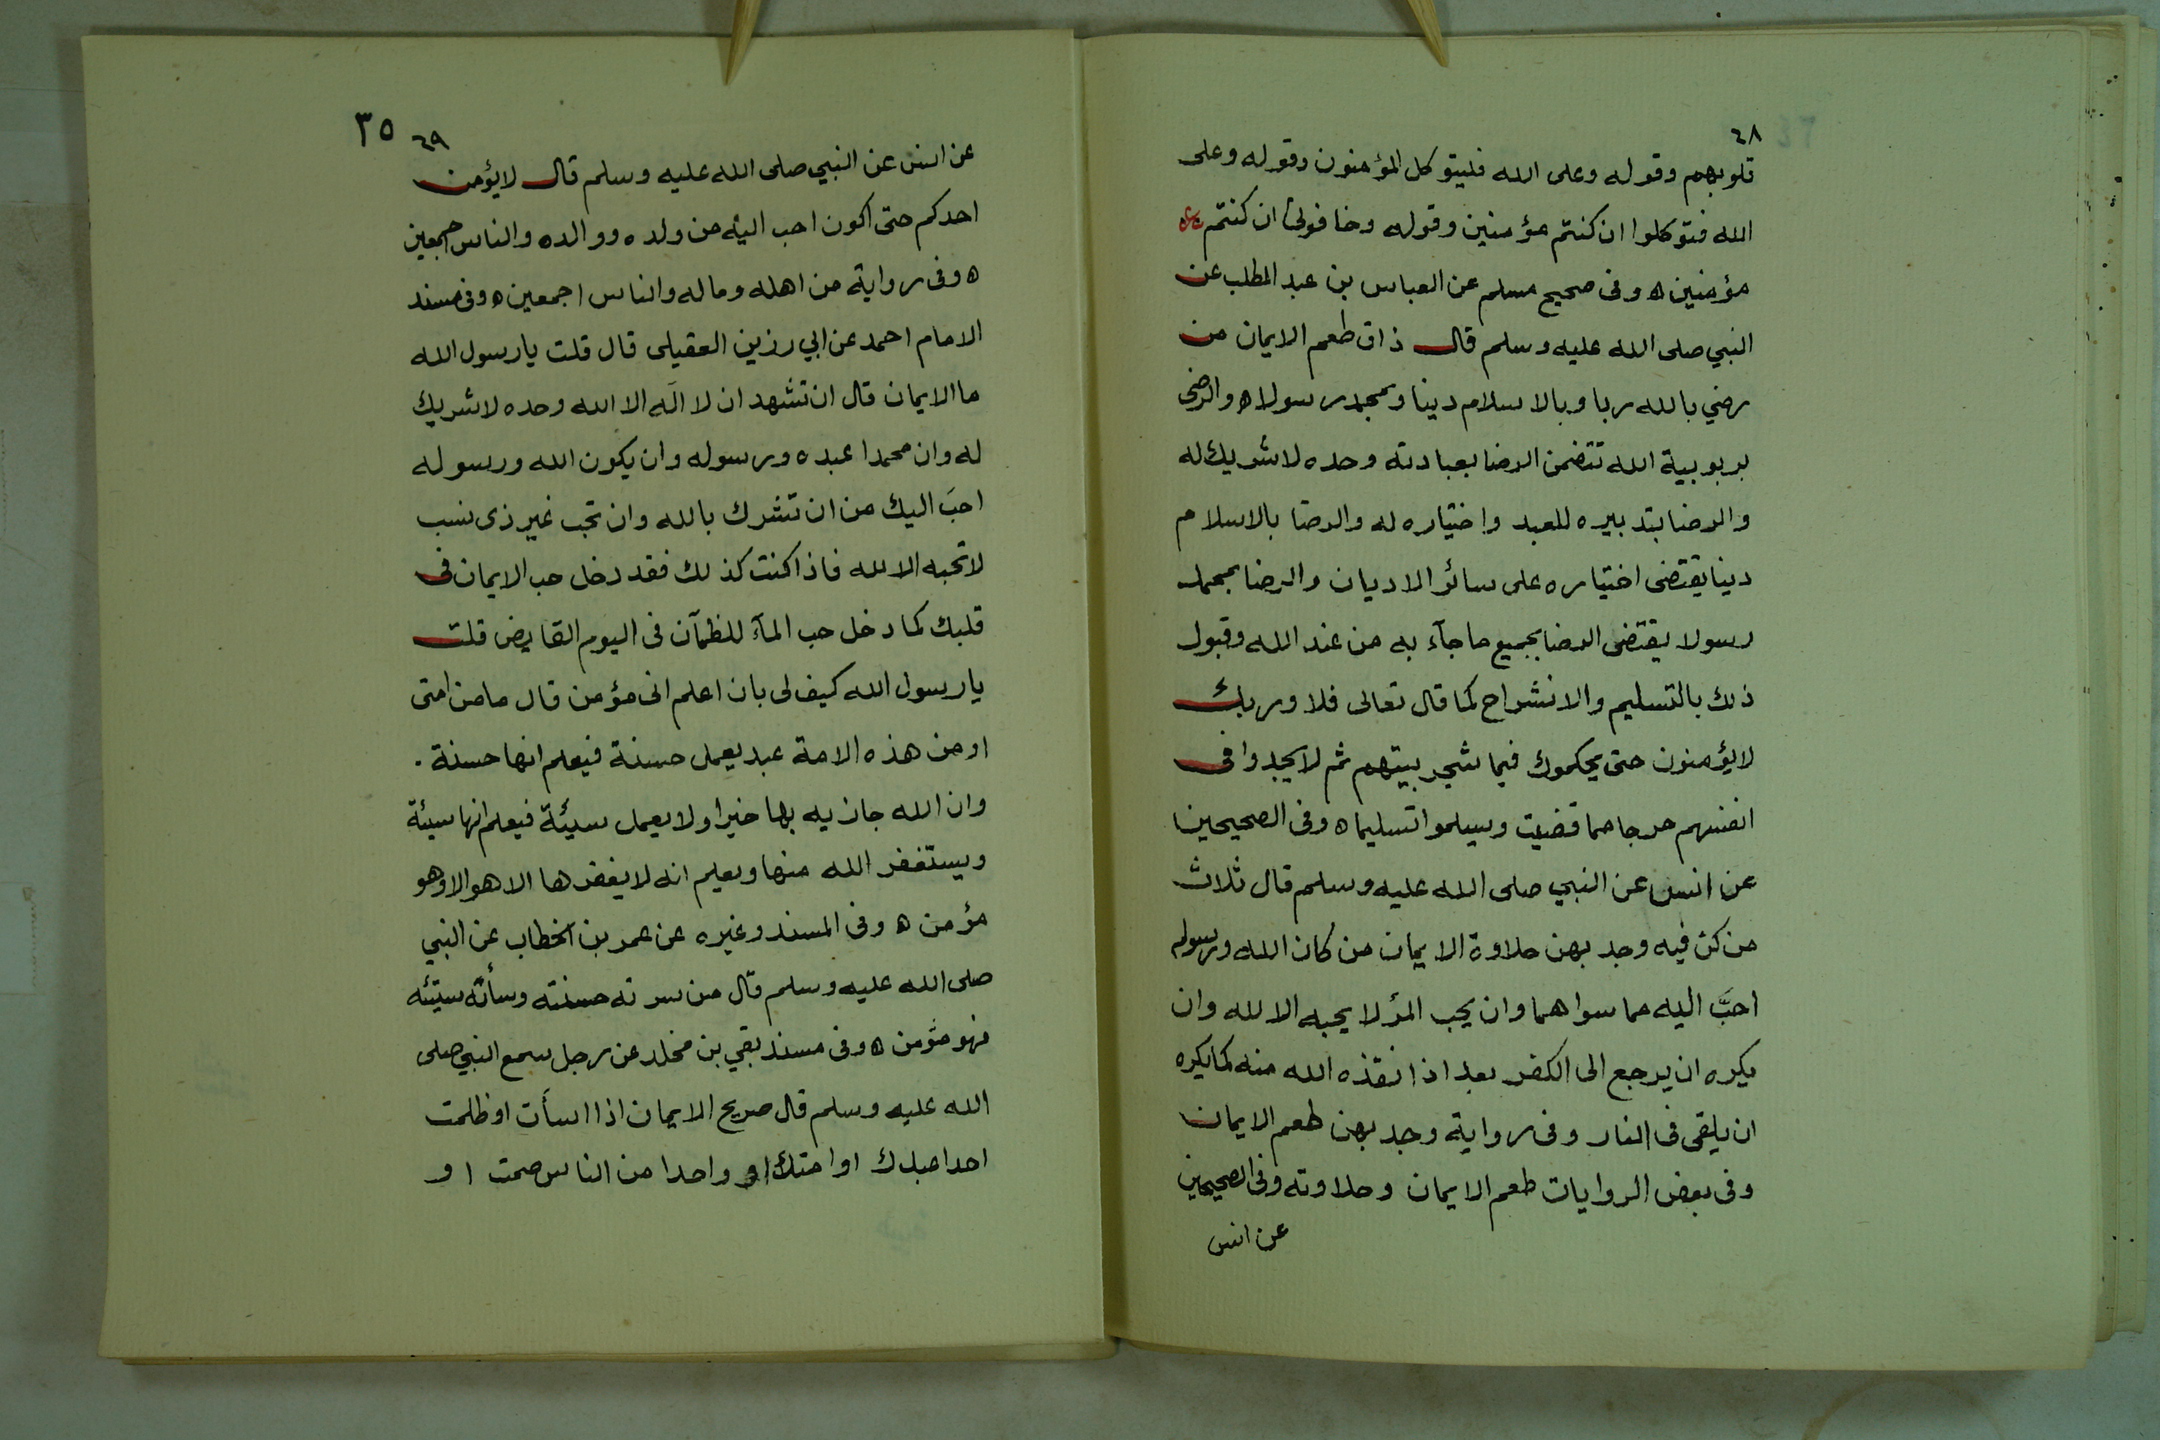 ٤٨
قلوبهم وقوله وعلى الله فليتوكل المؤمنون وقوله وعلى
الله فتوكلوا ان كنتم مؤمنين وقوله وخافونى ان كنتم
مؤمنين ه وفى صحيح مسلم عن العباس بن عبد المطلب عن
النبي صلى الله عليه وسلم قال ذاق طعم الايمان من
رضي بالله ربا وبالاسلام دينا وبمحمد رسولا ه والرضى
بربوبية الله تتضمن الرضا بعبادته وحده لاشريك له
والرضا بتدبيره للعبد واختياره له والرضا بالاسلام
دينا يقتضى اختياره على سائر الاديان والرضا بمحمد
رسولا يقتضى الرضا بجميع ما جآء به من عند الله وقبول
ذلك بالتسليم والانشراح كما قال تعالى فلا وربك
لايؤمنون حتى يحكموك فيما شجر بينهم ثم لايجدوا فى
انفسهم حرجا مما قضيت ويسلموا تسليما ه وفى الصحيحين
عن انس عن النبي صلى الله عليه وسلم قال ثلاث
من كن فيه وجد بهن حلاوة الايمان من كان الله ورسوله
احبَّ اليه مما سواهما وان يحب المرؤ لا يحبه الا لله وان
يكره ان يرجع الى الكفر بعد اذ انقذه الله منه كما يكره
ان يلقى فى النار وفى رواية وجد بهن طعم الايمان
وفى بعض الروايات طعم الايمان وحلاوته وفى الصحيحين
عن انس
٤٩ ٣٥
عن انس عن النبي صلى الله عليه وسلم قال لايؤمن
احدكم حتى اكون احب اليه من ولده ووالده والناس اجمعين
ه وفى رواية من اهله وماله والناس اجمعين ه وفى مسند
الامام احمد عن ابي رزين العقيلى قال قلت يارسول الله
ما الايمان قال ان تشهد ان لا الَه الا الله وحده لاشريك
له وان محمدا عبده ورسوله وان يكون الله ورسوله
احبَ اليك من ان تشرك بالله وان تحب غير ذى نسب
لاتحبه الا لله فاذا كنت كذلك فقد دخل حب الايمان فى
قلبك كما دخل حب المآء للظمآن فى اليوم القايض قلت
يارسول الله كيف لى بان اعلم انى مؤمن قال ما من امتى
او من هذه الامة عبد يعمل حسنة فيعلم انها حسنة .
وان الله جازيه بها خيرا ولايعمل سيئة فيعلم انها سيئة
ويستغفر الله منها ويعلم انه لايغفرها الا هو الا وهو
مؤمن ه وفى المسند وغيره عن عمر بن الخطاب عن النبي
صلى الله عليه وسلم قال من سرته حسنته وسأته سيئته
فهو مؤمن ه وفى مسند بقي بن مخلد عن رجل سمع النبي صلى
الله عليه وسلم قال صريح الايمان اذا اسأت او ظلمت
احدا عبدك او امتك او واحدا من الناس صمت او